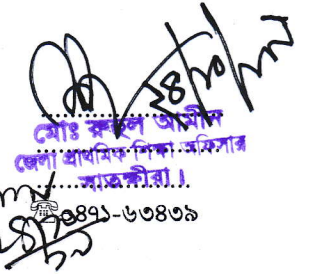 মোঃ রুহুল আমীন
জেলা প্রাথমিক শিক্ষা অফিসার
সাতক্ষীরা।
☎০৪৭১-৬৩৪৩৯